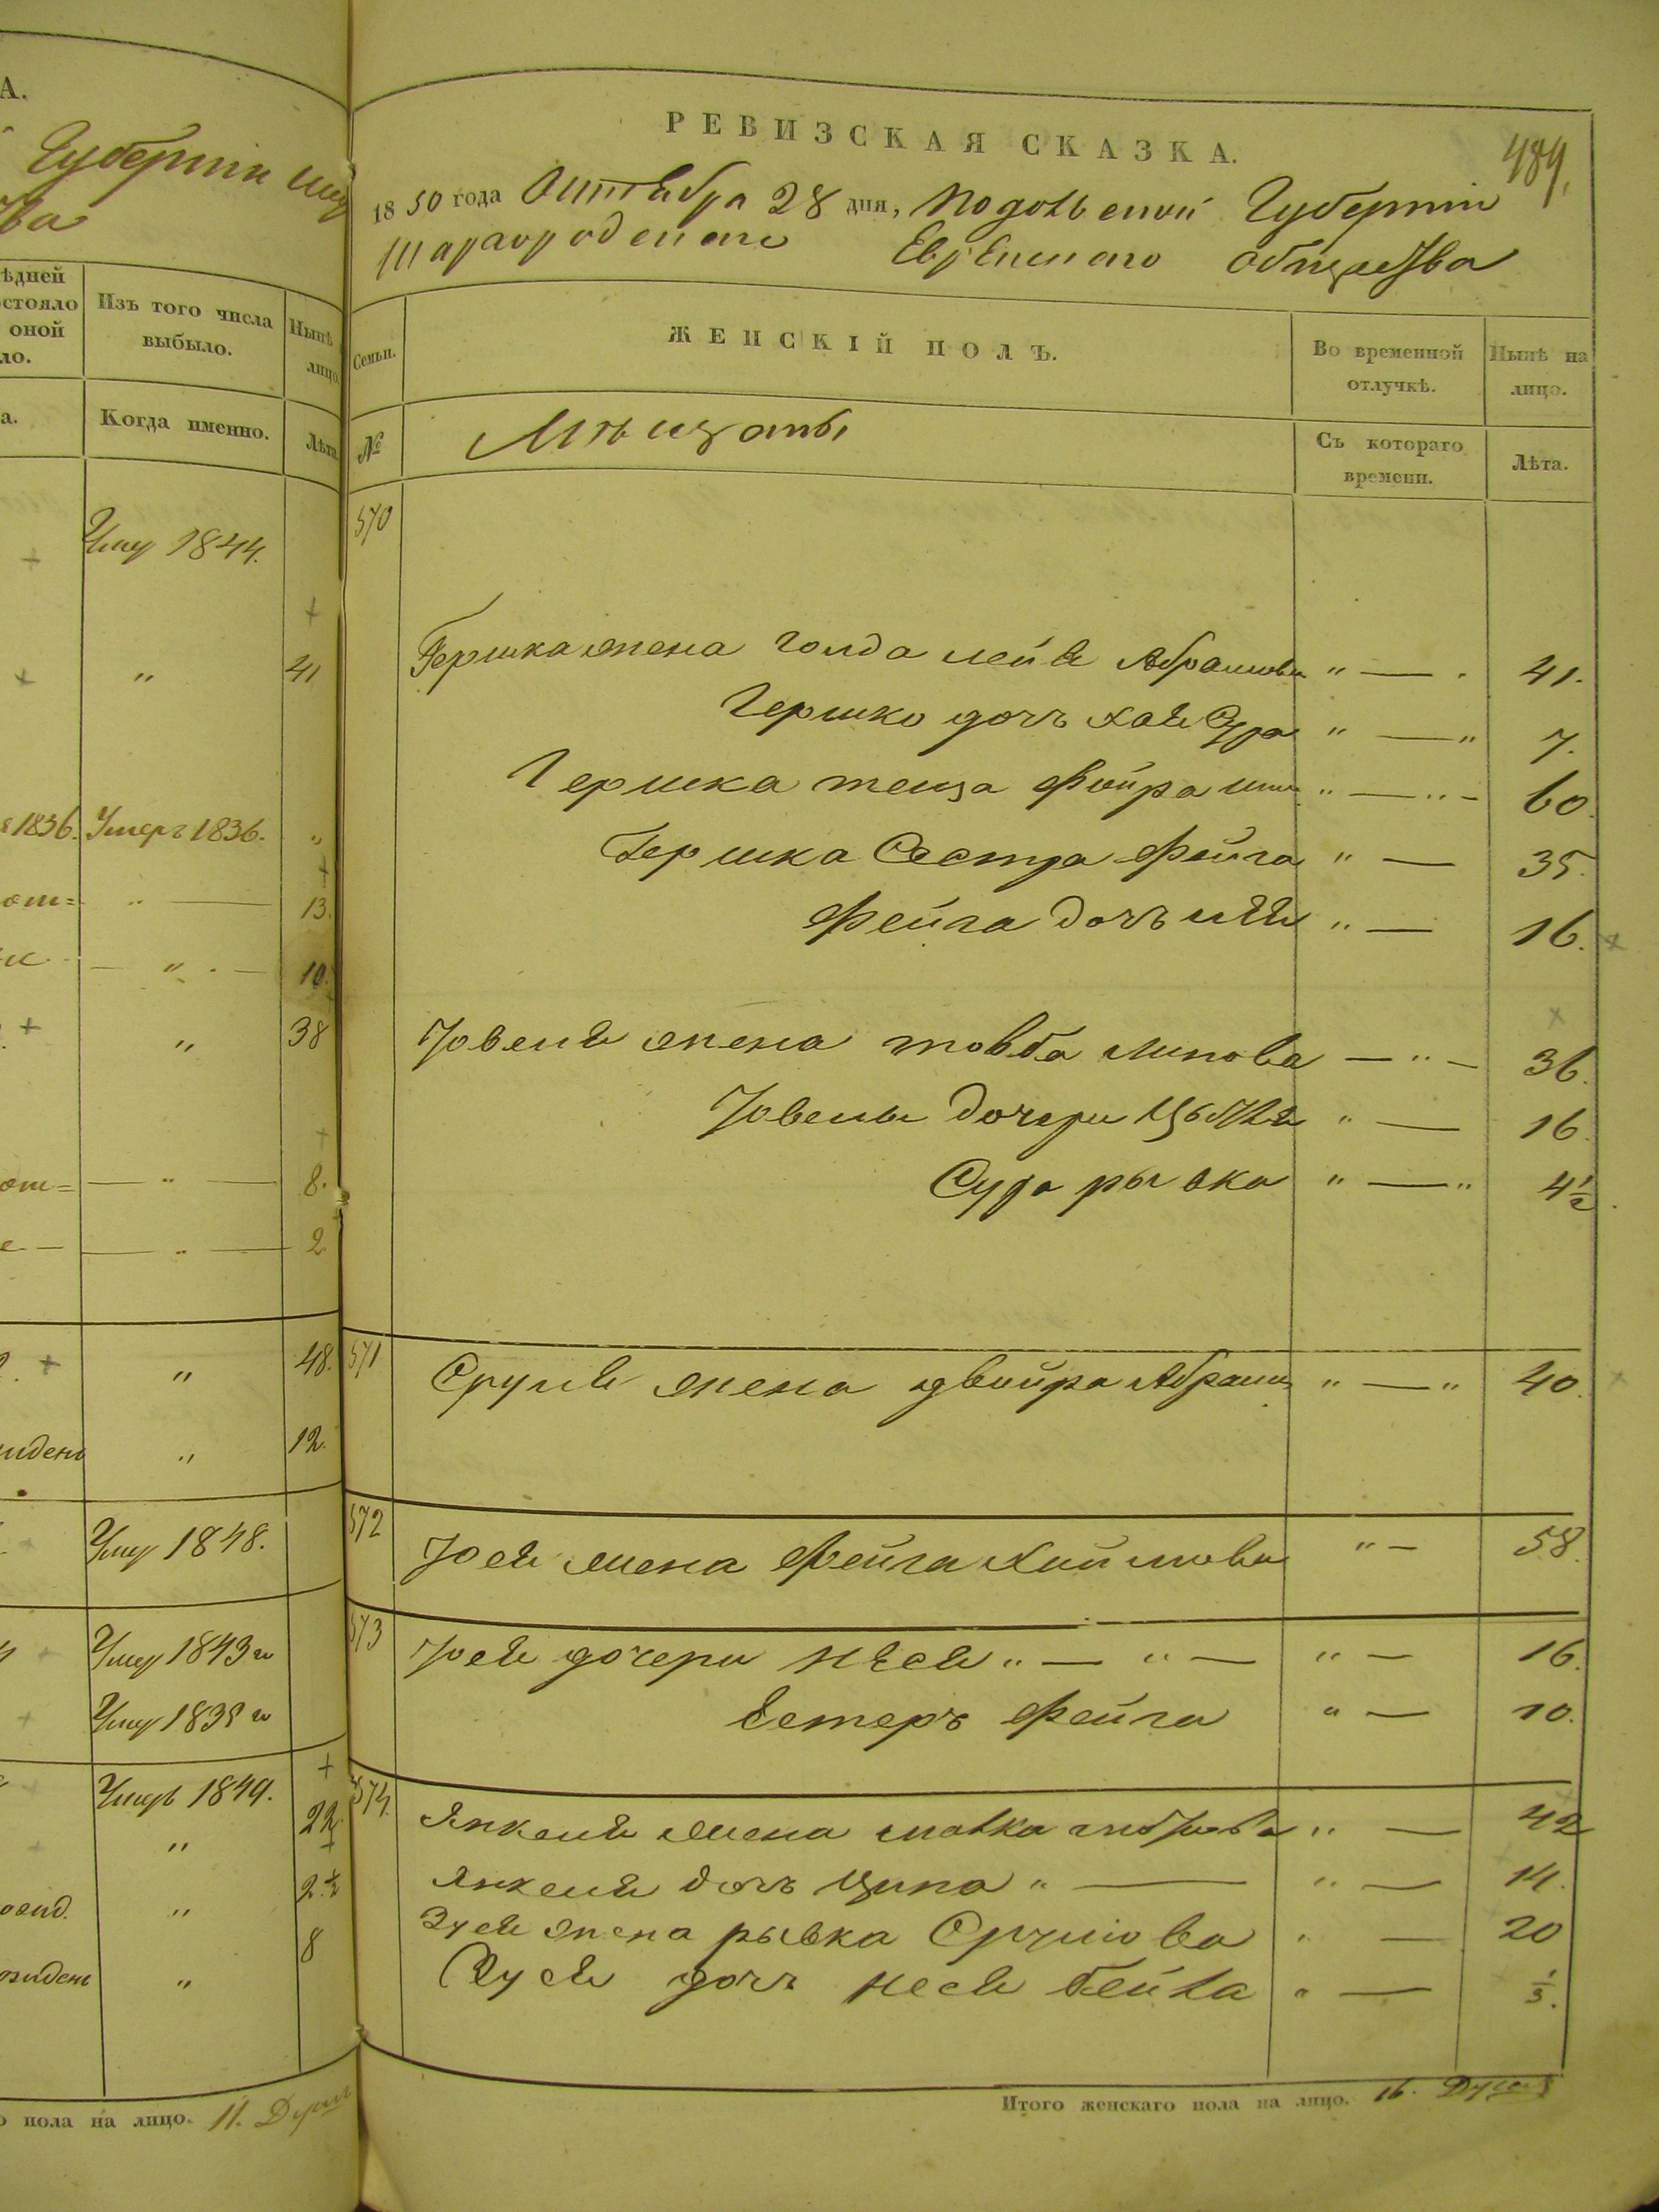 А.
Губернiи
ва
ѣдней
остояло
оной
ло.
Изъ того числа
выбыло.
Нынѣ
лицо.
а.
Когда именно.
Лѣта
Умер 1844.
"
41
1836. Умеръ 1836. "
от= " — 13.
— " — 10.
" 38
от= — " — 8.
— " — 2
" 48.
" 12.
Умер 1848.
Умер 1843 г
Умер 1835 г
Умеръ 1849.
" 22
" 2 ½
" 8
о пола на лицо. 11. Душъ
РЕВИЗСКАЯ СКАЗКА.
489.
1850 года Октября 28 дня, Подольской Губернiи
Шаргородскаго Еврейскаго общества
Семьи.
ЖЕНСКIЙ ПОЛЪ.
Во временной
отлучкѣ.
Нынѣ на
лицо.
№
Мѣщаны
Съ котораго
времени.
Лѣта.
570
Гершка жена Голда лейя Абрамова " — . 41.
Гершко дочь хая Сура " — " 7.
Гершка теща Фойра " — " — 60.
Гершка Сестра Фейга " — 35.
Фейга дочь " — 16.
жена товба липова — " — 36.
дочери " — 16.
Сура рывка " — " 4½.
571 Сруля жена двойра Абрам " — " 40.
572 Юся жена Фейга Хаимова " — 58.
573 Юся дочери Нѣся " — " — " — 16.
Естеръ Фейга " — 10.
574. Янкеля жена " — 42
Янкеля дочь Ципа " — " — 14.
Зуся жена рывка Срулова " — 20
Зуся дочь неся бейла " — ⅓.
Итого женскаго пола на лицо. 16. Душъ